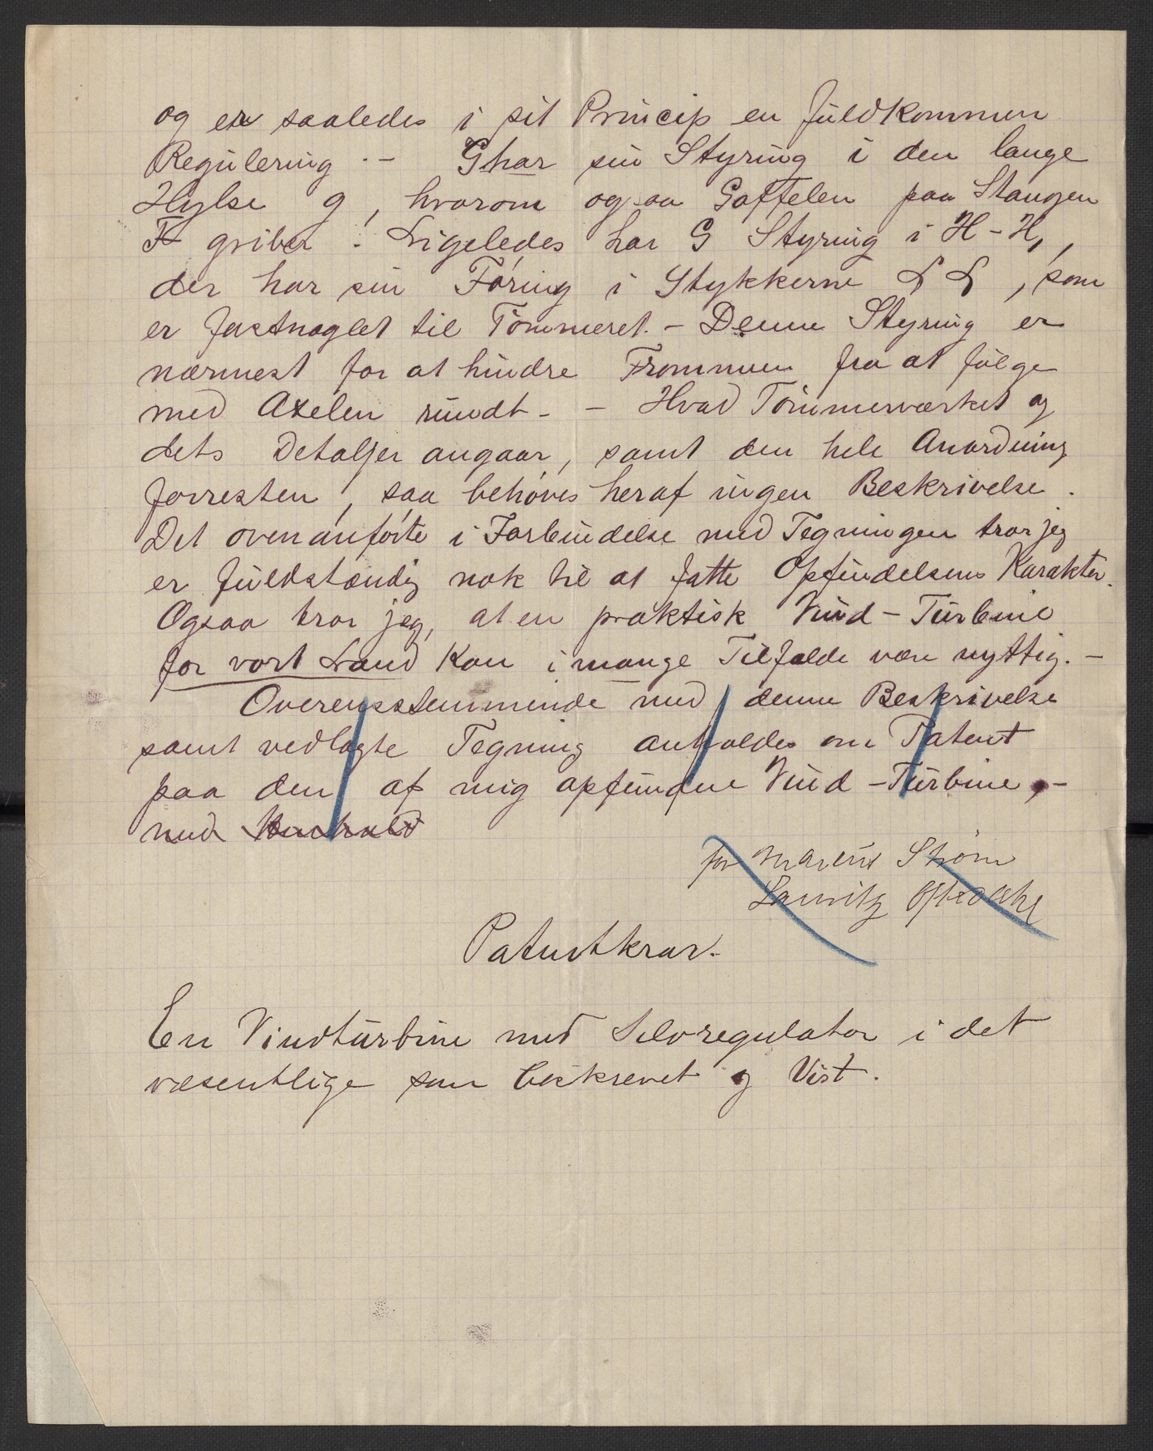 og er saaledes i sit Princip en fuldkommen
Regulering .- G har sin Styring i den lange
Hylse g, hvorom ogsaa Gaffelen paa Stangen
F griber. Ligeledes har G Styring i H-H,,
der har sin Föring i Stykkerne L L, som
er fastnaglet til Tömmeret.- Denne Styring er
nærmest for at hindre Trommen fra at fölge
med Axelen rundt. - Hvad Tömmerværket og
dets Detaljer angaar, samt den hele Anordning
forresten, saa behöves heraf ingen Beskrivelse.
Det ovenanförte i Forbindelse med Tegningen tror jeg
er fuldstændig nok til at fatte Opfindelsens Karakter.
Ogsaa tror jeg, at en praktisk Vind-Turbine
for vort Land kan i mange Tilfælde være nyttig.-
Overensstemmende med denne Beskrivelse
samt vedlagte Tegning anholdes om Patent
paa den af mig opfundne Vind-Turbine,-
med
for Marius Strøm
Lauritz
Patentkrav.
En Vindturbine med Selvregulator i det
væsentlige som beskrevet og Vist.